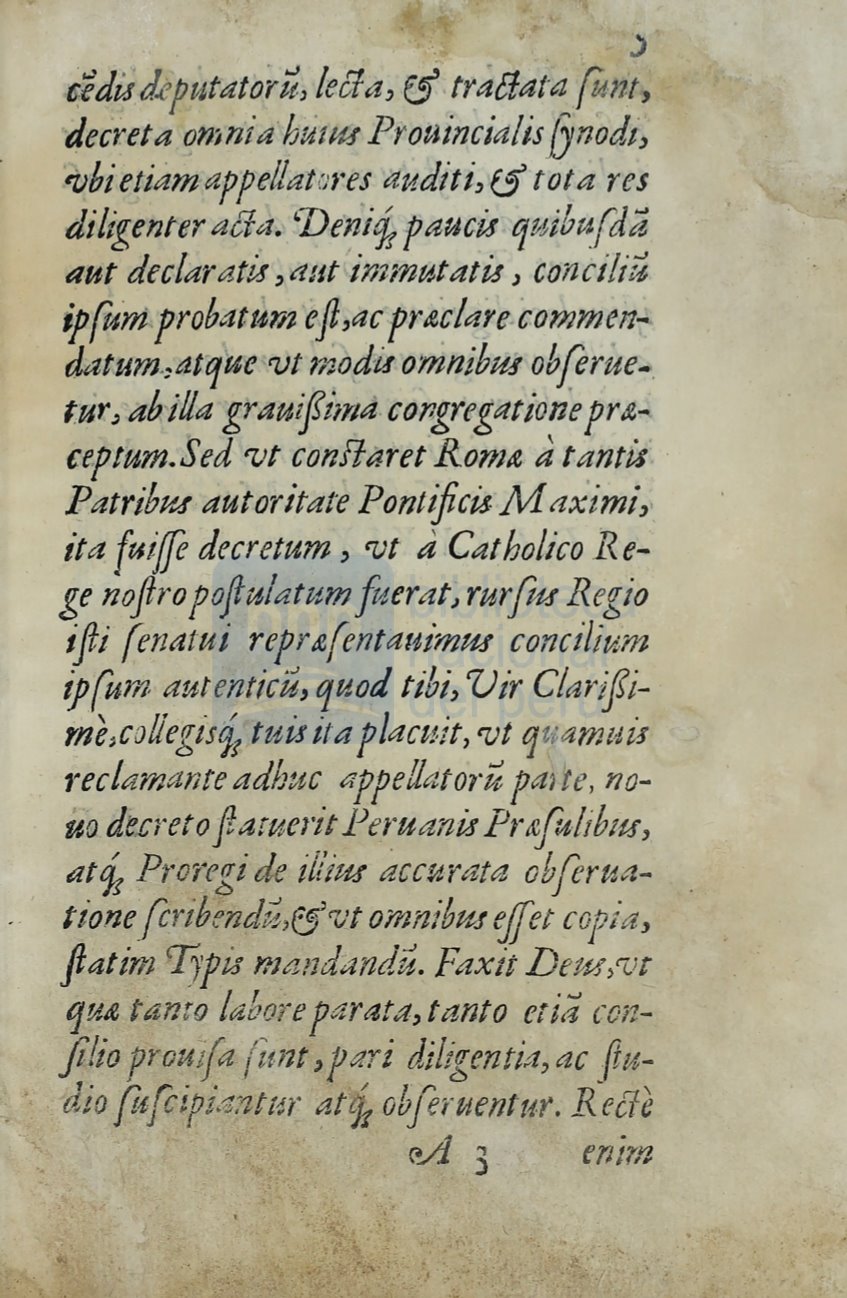 cẽdis deputatorũ, lecta, & tractata ſunt,
decreta omnia huius Prouincialis ſynodi,
vbi etiam appellatores auditi, & tota res
diligenter acta. Deniq́; paucis quibuſdã
aut declaratis, aut immutatis, conciliũ
ipſum probatum eſt, ac præclare commen-
datum: atque vt modis omnibus obſerue-
tur, ab illa grauißima congregatione præ-
ceptum. Sed vt conſtaret Romæ à tantis
Patribus autoritate Pontificis Maximi,
ita fuiſſe decretum, vt à Catholico Re-
ge noſtro poſtulatum fuerat, rurſus Regio
iſti ſenatui repræſentauimus concilium
ipſum autenticũ, quod tibi, Vir Clarißi-
mè, collegisq́; tuis ita placuit, vt quamuis
reclamante adhuc appellatorũ parte, no-
uo decreto ſtatuerit Peruanis Præſulibus,
atq́; Proregi de illius accurata obſerua-
tione ſcribendũ, & vt omnibus eſſet copia,
ſtatim Typis mandandũ. Faxit Deus, vt
quæ tanto labore parata, tanto etiã con-
ſilio prouiſa ſunt, pari diligentia, ac ſtu-
dio ſuſcipiantur atq́; obſeruentur. Rectè
A 3 enim